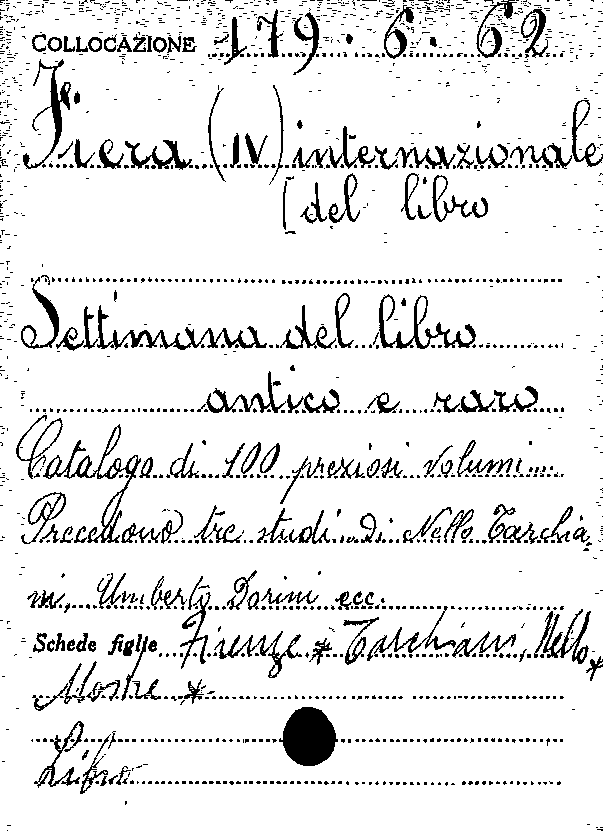 COLLOCAZIONE 179.6.62
Fiera (IV) internazionale
[del libro
Settimana del libro
antico e raro
Catalogo di 100 preziosi volumi....
Precedono tre studi.. di Nello Tarchia-
ni, Umberto Dorini ecc.
Schede figlie Firenze * Tarchiani, Nello *
Mostre *
Libro